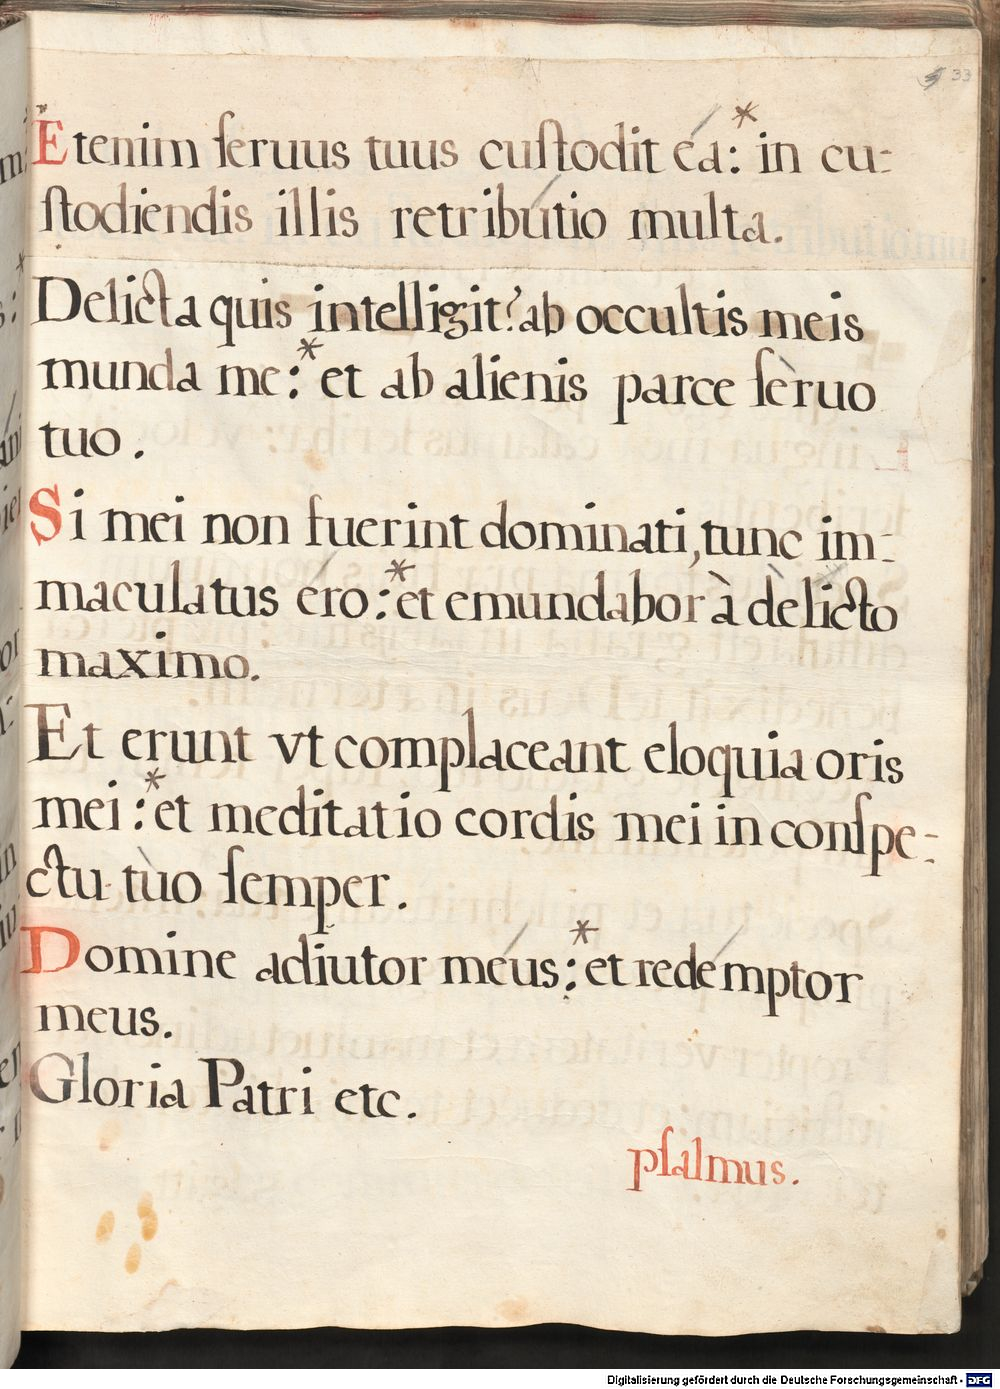 33
Etenim ſeruus tuus cuſtodit éa: * in cu-
ſtodiendis illis retribútio multa.
Delicta quis intelligit? ab occultis meis
munda me: * et ab alienis parce ſèruo
tuo.
Si mei non fuerint dominati, tunc im-
maculatus éro: * et emundabor à dèlicto
maximo.
Et erunt vt complaceant eloquia oris
mei: * et meditatio cordis mei in conſpe-
ctu tùo ſemper.
Domine adiutor méus: * et redémptor
meus.
Gloria Patri etc.
pſalmus.
Digitalisierung gefördert durch die Deutsche Forschungsgemeinschaft - DFG